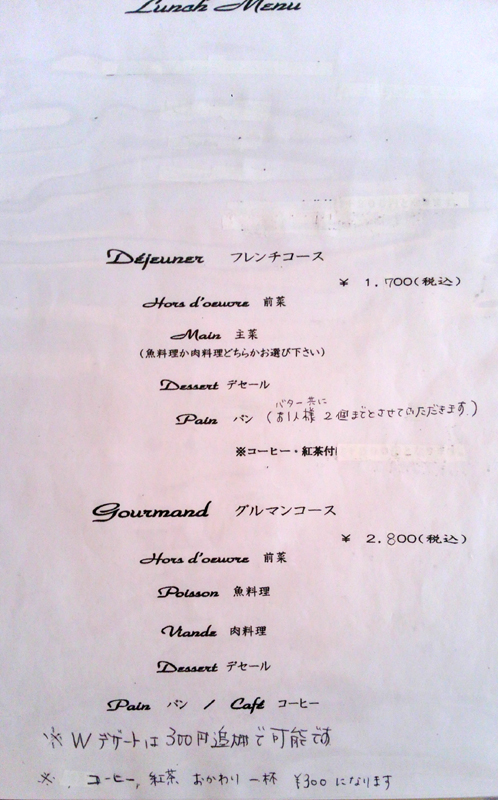 Lunch Menu
Déjeuner フレンチコース
¥ 1.700(税込)
Hors d'oeuvre 前菜
Main 主菜
(魚料理か肉料理どちらかお選び下さい)
Dessert デセール
バター共に
Pain パン (お1人様 2個までとさせていただきます。)
※コーヒー・紅茶付
Gourmand グルマンコース
¥ 2.800(税込)
Hors d'oeuvre 前菜
Poisson 魚料理
Viande 肉料理
Dessert デセール
Pain パン / Café コーヒー
※ Wデザートは 300円追加で可能です
※ コーヒー, 紅茶 おかわり 一杯 ¥300 になります